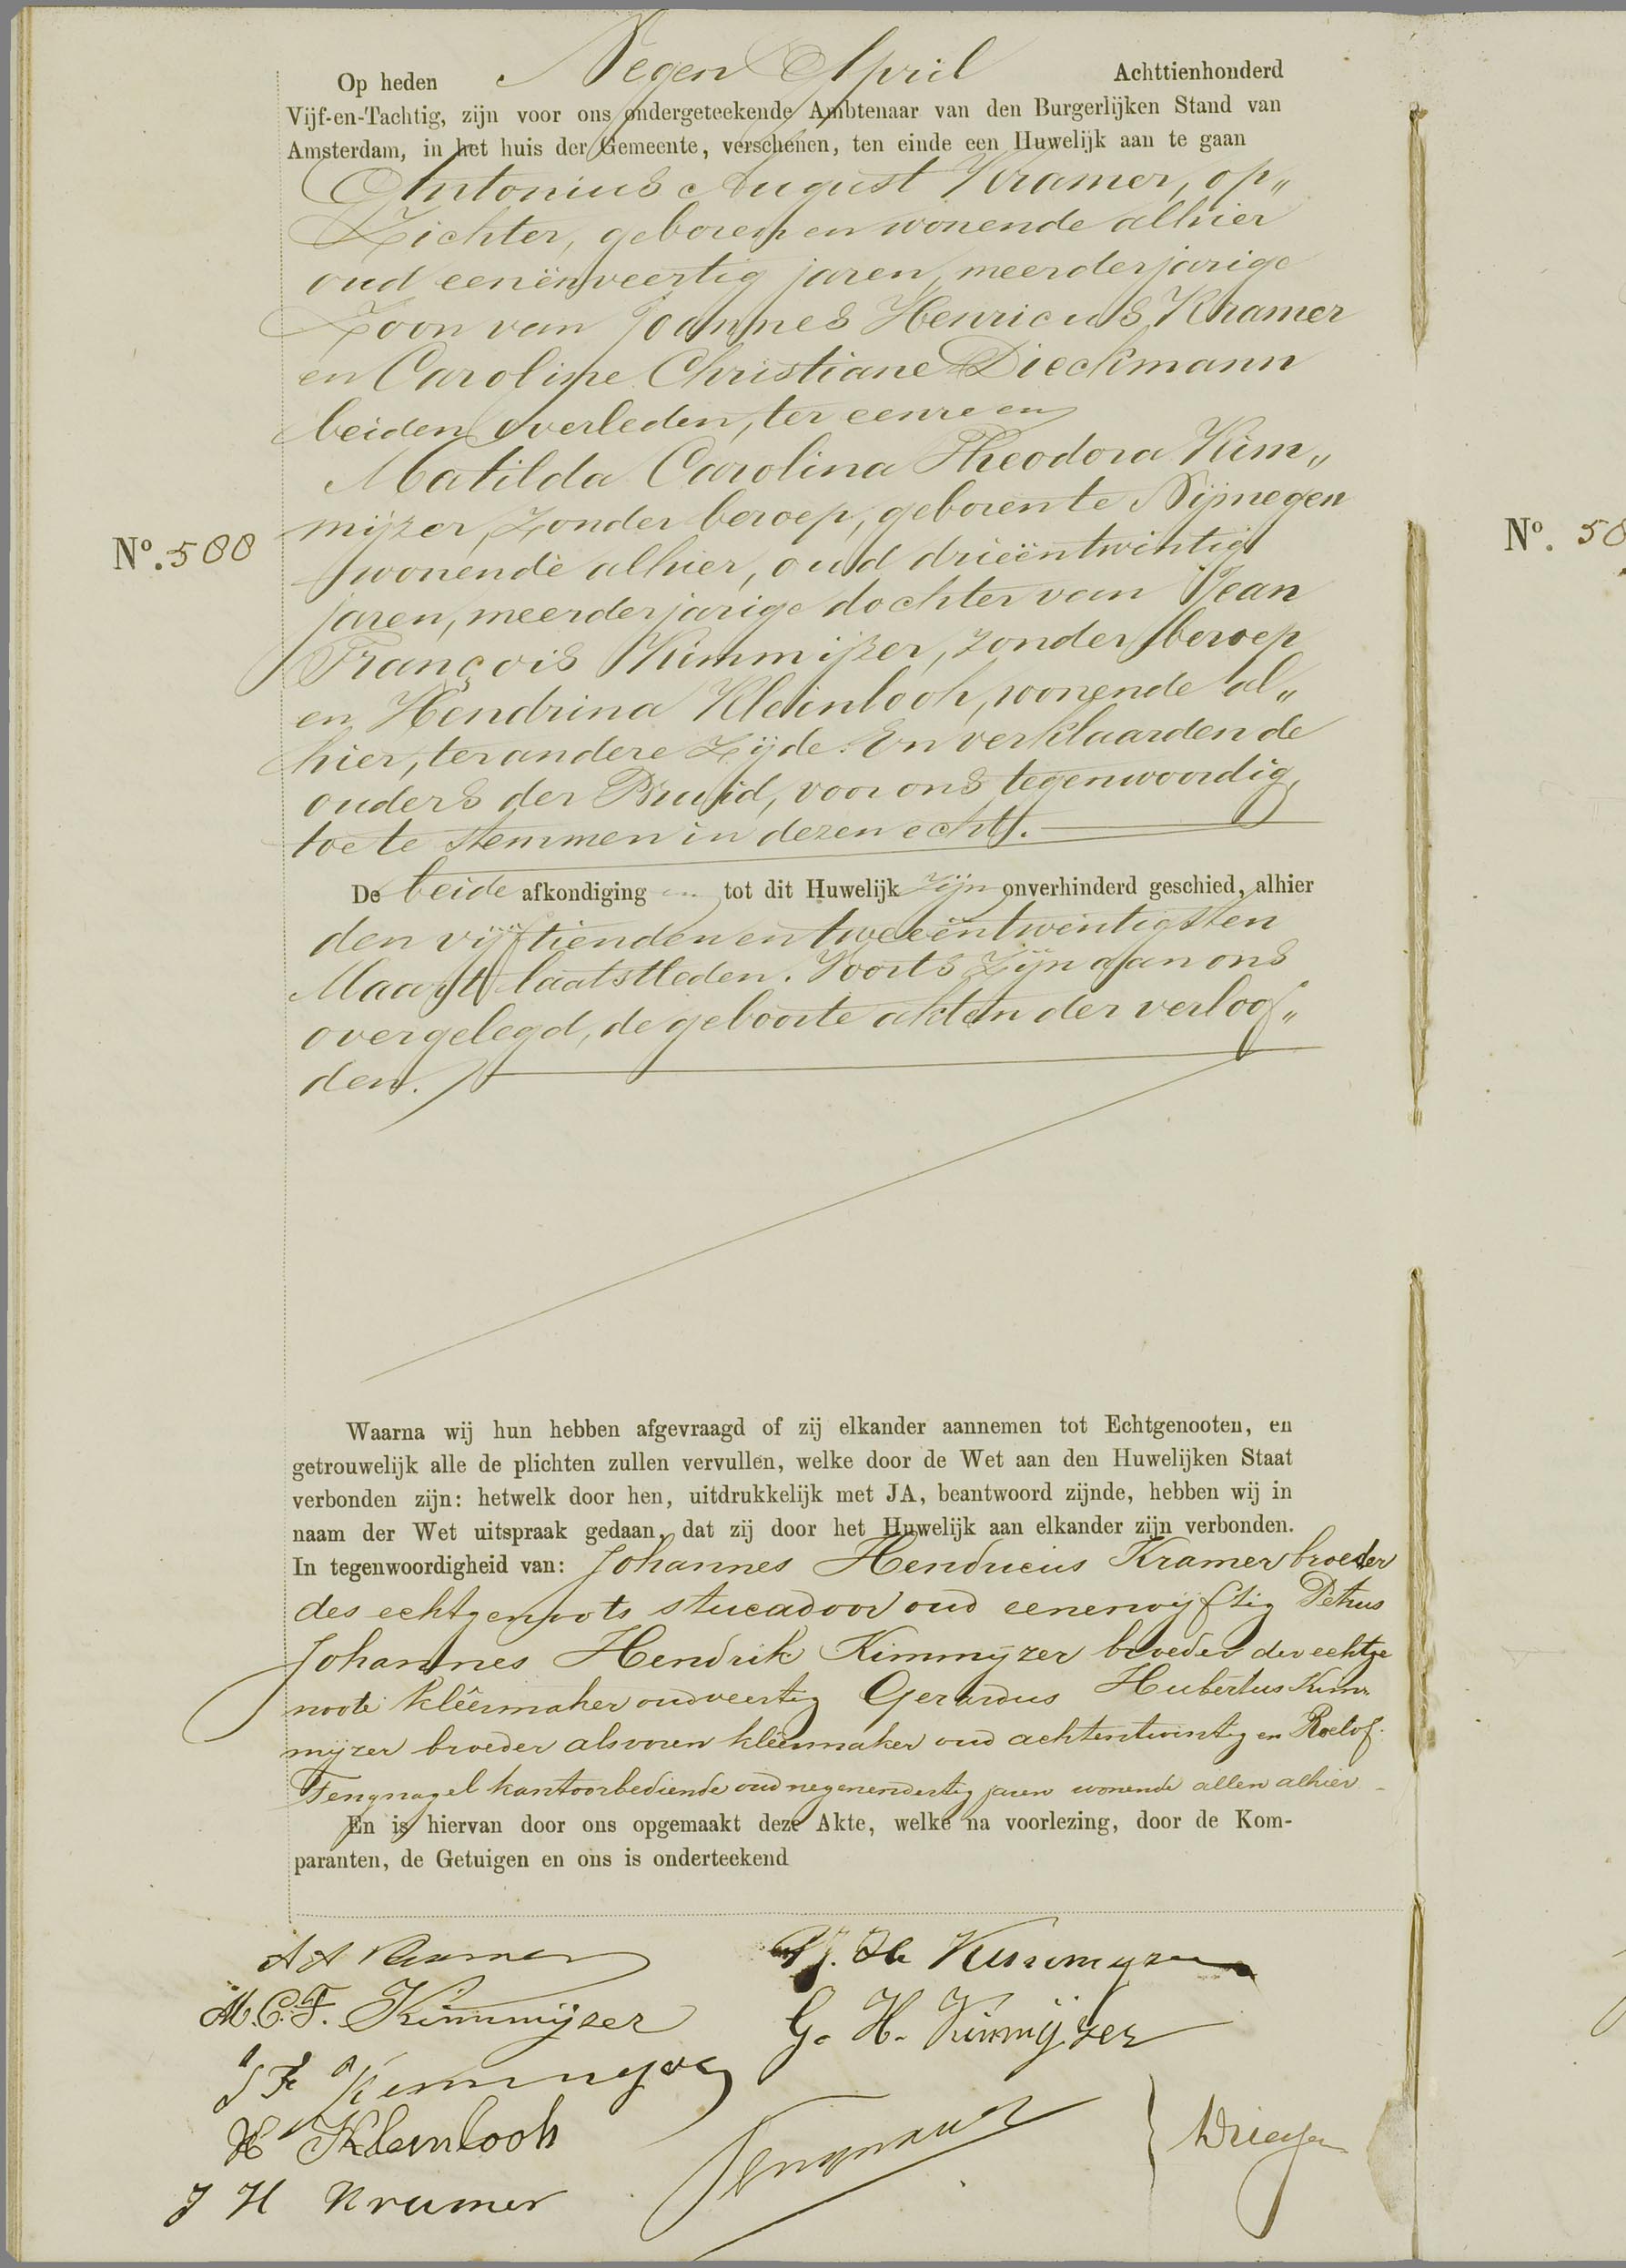 Op heden Negen April Achttienhonderd
Vijf-en-Tachtig, zijn voor ons ondergeteekende Ambtenaar van den Burgerlijken Stand van
Amsterdam, in het huis der Gemeente, verschenen, ten einde een Huwelijk aan te gaan
Antonius August Kramer, op„
Zichter, geboren en wonende alhier
oud eenënveertig jaren, meerderjarige
Zoon van Joannes Henricus Kramer
en Caroline Christiane Dieckmann
beiden overleden, ter eenre en
Matilda Carolina Theodora Kim„
mijzer, Zonder beroep, geboren te Nijmegen
No. 500
wonende alhier, oud drieëntwintig
jaren, meerderjarige dochter van Jean
François Kimmijzer, zonder beroep
en Hendrina Kleinlooh, wonende al„
hier, ter andere Zijde. En verklaarden de
ouders der Bruid, voor ons tegenwoordig,
toe te stemmen in dezen echt.
De beide afkondiging en tot dit Huwelijk zijn onverhinderd geschied, alhier
den vijftienden en tweeëntwintigsten
Maart laatstleden. Voorts Zijn aan ons
overgelegd, de geboorte akten der verloof„
den.
Waarna wij hun hebben afgevraagd of zij elkander aannemen tot Echtgenooten, en
getrouwelijk alle de plichten zullen vervullen, welke door de Wet aan den Huwelijken Staat
verbonden zijn: hetwelk door hen, uitdrukkelijk met JA, beantwoord zijnde, hebben wij in
naam der Wet uitspraak gedaan, dat zij door het Huwelijk aan elkander zijn verbonden.
In tegenwoordigheid van: Johannes Hendricus Kramer broeder
des echtgenoots stucadoor oud eenenvijftig Petrus
Johannes Hendrik Kimmijzer broeder der echtge
noote kléermaker oud veertig Gerardus Hubertus Kim„
mijzer broeder als voren kléermaker oud achtentwintig en Roelof
Tengnagel kantoorbediende oud negenendertig jaren wonende allen alhier
En is hiervan door ons opgemaakt deze Akte, welke na voorlezing, door de Kom-
paranten, de Getuigen en ons is onderteekend
A A Kramer
M. C. T. Kimmijzer
J F Kimmyzer
H Kleinlooh
J H Kramer
P. J. H. Kimmyzer
G. H. Kimmijzer
Tengnagel
No. 50